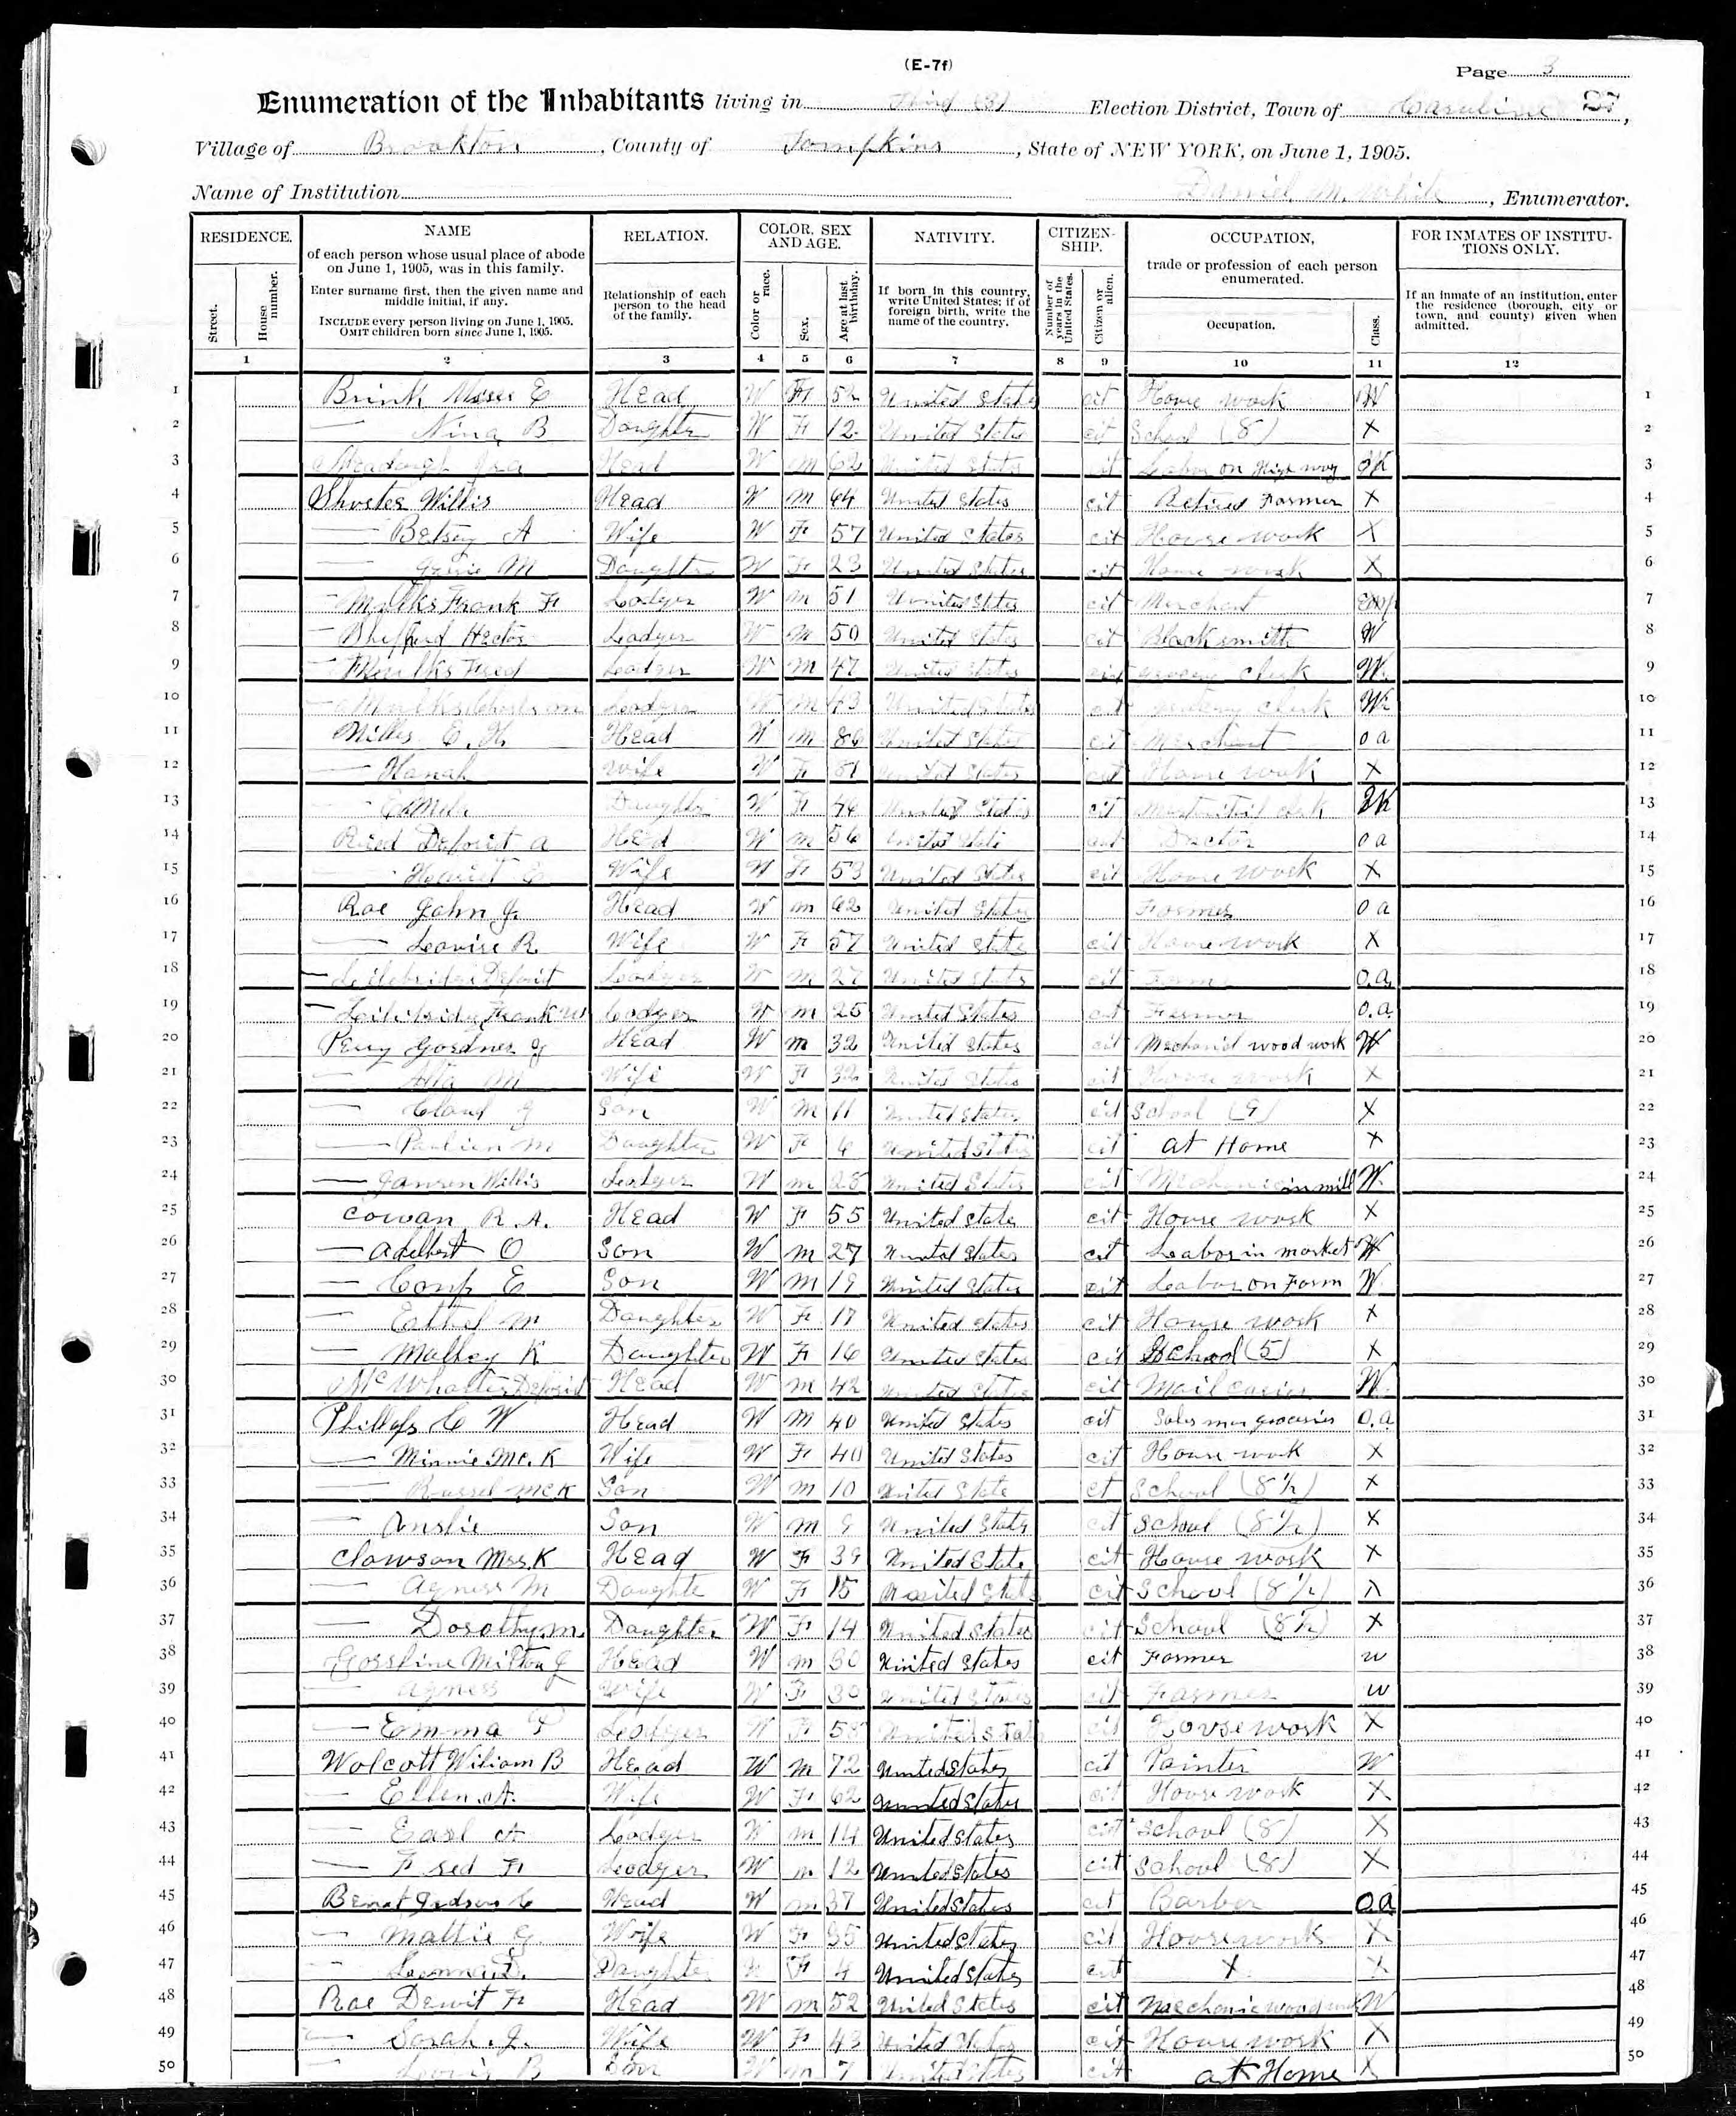 (E-7f)
Page 3
Enumeration of the Inhabitants living in Third (3) Election District, Town of Caroline
Village of Brookton, County of Tompkins, State of NEW YORK, on June 1, 1905.
Name of Institution Daniel M. White, Enumerator.
RESIDENCE. NAME RELATION. COLOR, SEX AND AGE. NATIVITY. CITIZEN-SHIP. OCCUPATION, FOR INMATES OF INSTITU-TIONS ONLY.
Street. House number. of each person whose usual place of abode on June 1, 1905, was in this family. Enter surname first, then the given name and middle initial, if any. INCLUDE every person living on June 1, 1905. OMIT children born since June 1, 1905. Relationship of each person to the head of the family. Color or race. Sex. Age at last birthday. If born in this country, write United States; if of foreign birth, write the name of the country. Number of years in the United States. Citizen or alien. trade or profession of each person enumerated. Occupation. Class. If an inmate of an institution, enter the residence (borough, city or town, and county) given when admitted.
1 2 3 4 5 6 7 8 9 10 11 12
1 Brink E Head W F 52 United States cit House work W 1
2 — Nina B Daughter W F 12 United States cit School (8) X 2
3 Ira Head W M 62 United States cit Labor on High way 3
4 Shuster Willis Head W M 64 United States cit Retired Farmer X 4
5 — Betsey A Wife W F 57 United States cit House work X 5
6 — M Daughter W F 23 United States cit House work X 6
7 — Mulks Frank F Lodger W M 51 United States cit Merchant 7
8 — Sheffied Hector Lodger W M 50 United States cit Blacksmith W 8
9 — Mulks Fred Lodger W M 47 United States cit grocery clerk W 9
10 — Mulks Charles Lodger W M 43 United States cit clerk W 10
11 Mills C. H. Head W M United States cit Merchant o a 11
12 — Hanah Wife W F United States cit House work X 12
13 — Daughter W F United States cit clerk 13
14 a Head W M 56 United State cit Doctor o a 14
15 — Wife W F 53 United States cit House work X 15
16 Roe John J. Head W M 62 United States Farmer o a 16
17 — Louise R Wife W F 57 United State cit House work X 17
18 — Lodger W M 27 United States cit Farm o.a. 18
19 — Frank W Lodger W M 25 United States cit Farmer o.a. 19
20 Perry Gordner J Head W M 32 United States cit Mechanist wood work W 20
21 — M Wife W F 32 United States cit House work X 21
22 — Claud J Son W M 11 United States cit School (9) X 22
23 — Paulien M Daughter W F 6 United States cit at Home X 23
24 — Willis Lodger W M 28 United States cit Mechanic in mill W. 24
25 Cowan R. A. Head W F 55 United State cit House work X 25
26 — Adelbert O Son W M 27 United States cit Labor in market W 26
27 — E Son W M 19 United States cit Labor on Farm W. 27
28 — Eathel M Daughter W F 17 United States cit House work X 28
29 — K Daughter W F 16 United States cit School (5) X 29
30 Head W M 42 United States cit Mail carier W. 30
31 Phillips C W Head W M 40 United States cit Sales man groceries o.a 31
32 — Minnie Mc. K Wife W F 40 United States cit House work X 32
33 — Russel McK Son W M 10 United State ct School (8 1/2) X 33
34 — Anslie Son W M 9 United States cit School (8 1/2) X 34
35 Clawson Mrs. K Head W F 39 United State cit House work X 35
36 — Agness M Daughte W F 15 United States cit School (8 1/2) X 36
37 — Dorothy M. Daughter W F 14 United States cit School (8 1/2) X 37
38 Gossline Milton J Head W M 30 United States cit Farmer w 38
39 — Agness Wife W F 30 United States cit Farmer w 39
40 — Emma P Lodger W F United States cit Housework X 40
41 Wolcott Wiliam B Head W M 72 United States cit Painter W 41
42 — Ellen A. Wife W F 62 United States cit House work X 42
43 — Earl A Lodger W M 14 United States cit School (8) X 43
44 — Fred F Lodger W M 12 United States cit School (8) X 44
45 Judson C Head W M 37 United States cit Barber O.a 45
46 — Mattie G Wife W F 35 United States cit Housework X 46
47 — Daughter W F 4 United States cit X X 47
48 Roe Dewit F Head W M 52 United States cit Mechanic wood W 48
49 — Sarah J. Wife W F 43 United States cit Housework X 49
50 — B Son W M 7 United States cit at Home X 50